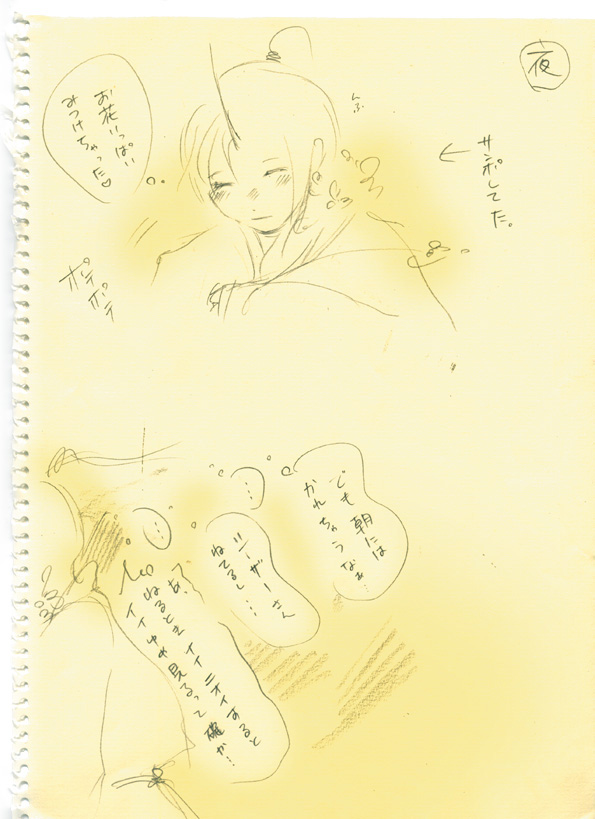 夜
サンポしてた。
んふ
お花いっぱい
みつけちゃった♡
ポテ
ポテ
でも朝には
かれちゃうなぁ…
…
シーザーさん
ねてるし…
…
あ、
ねるときイイニオイすると
イイゆめ見るって
確か…